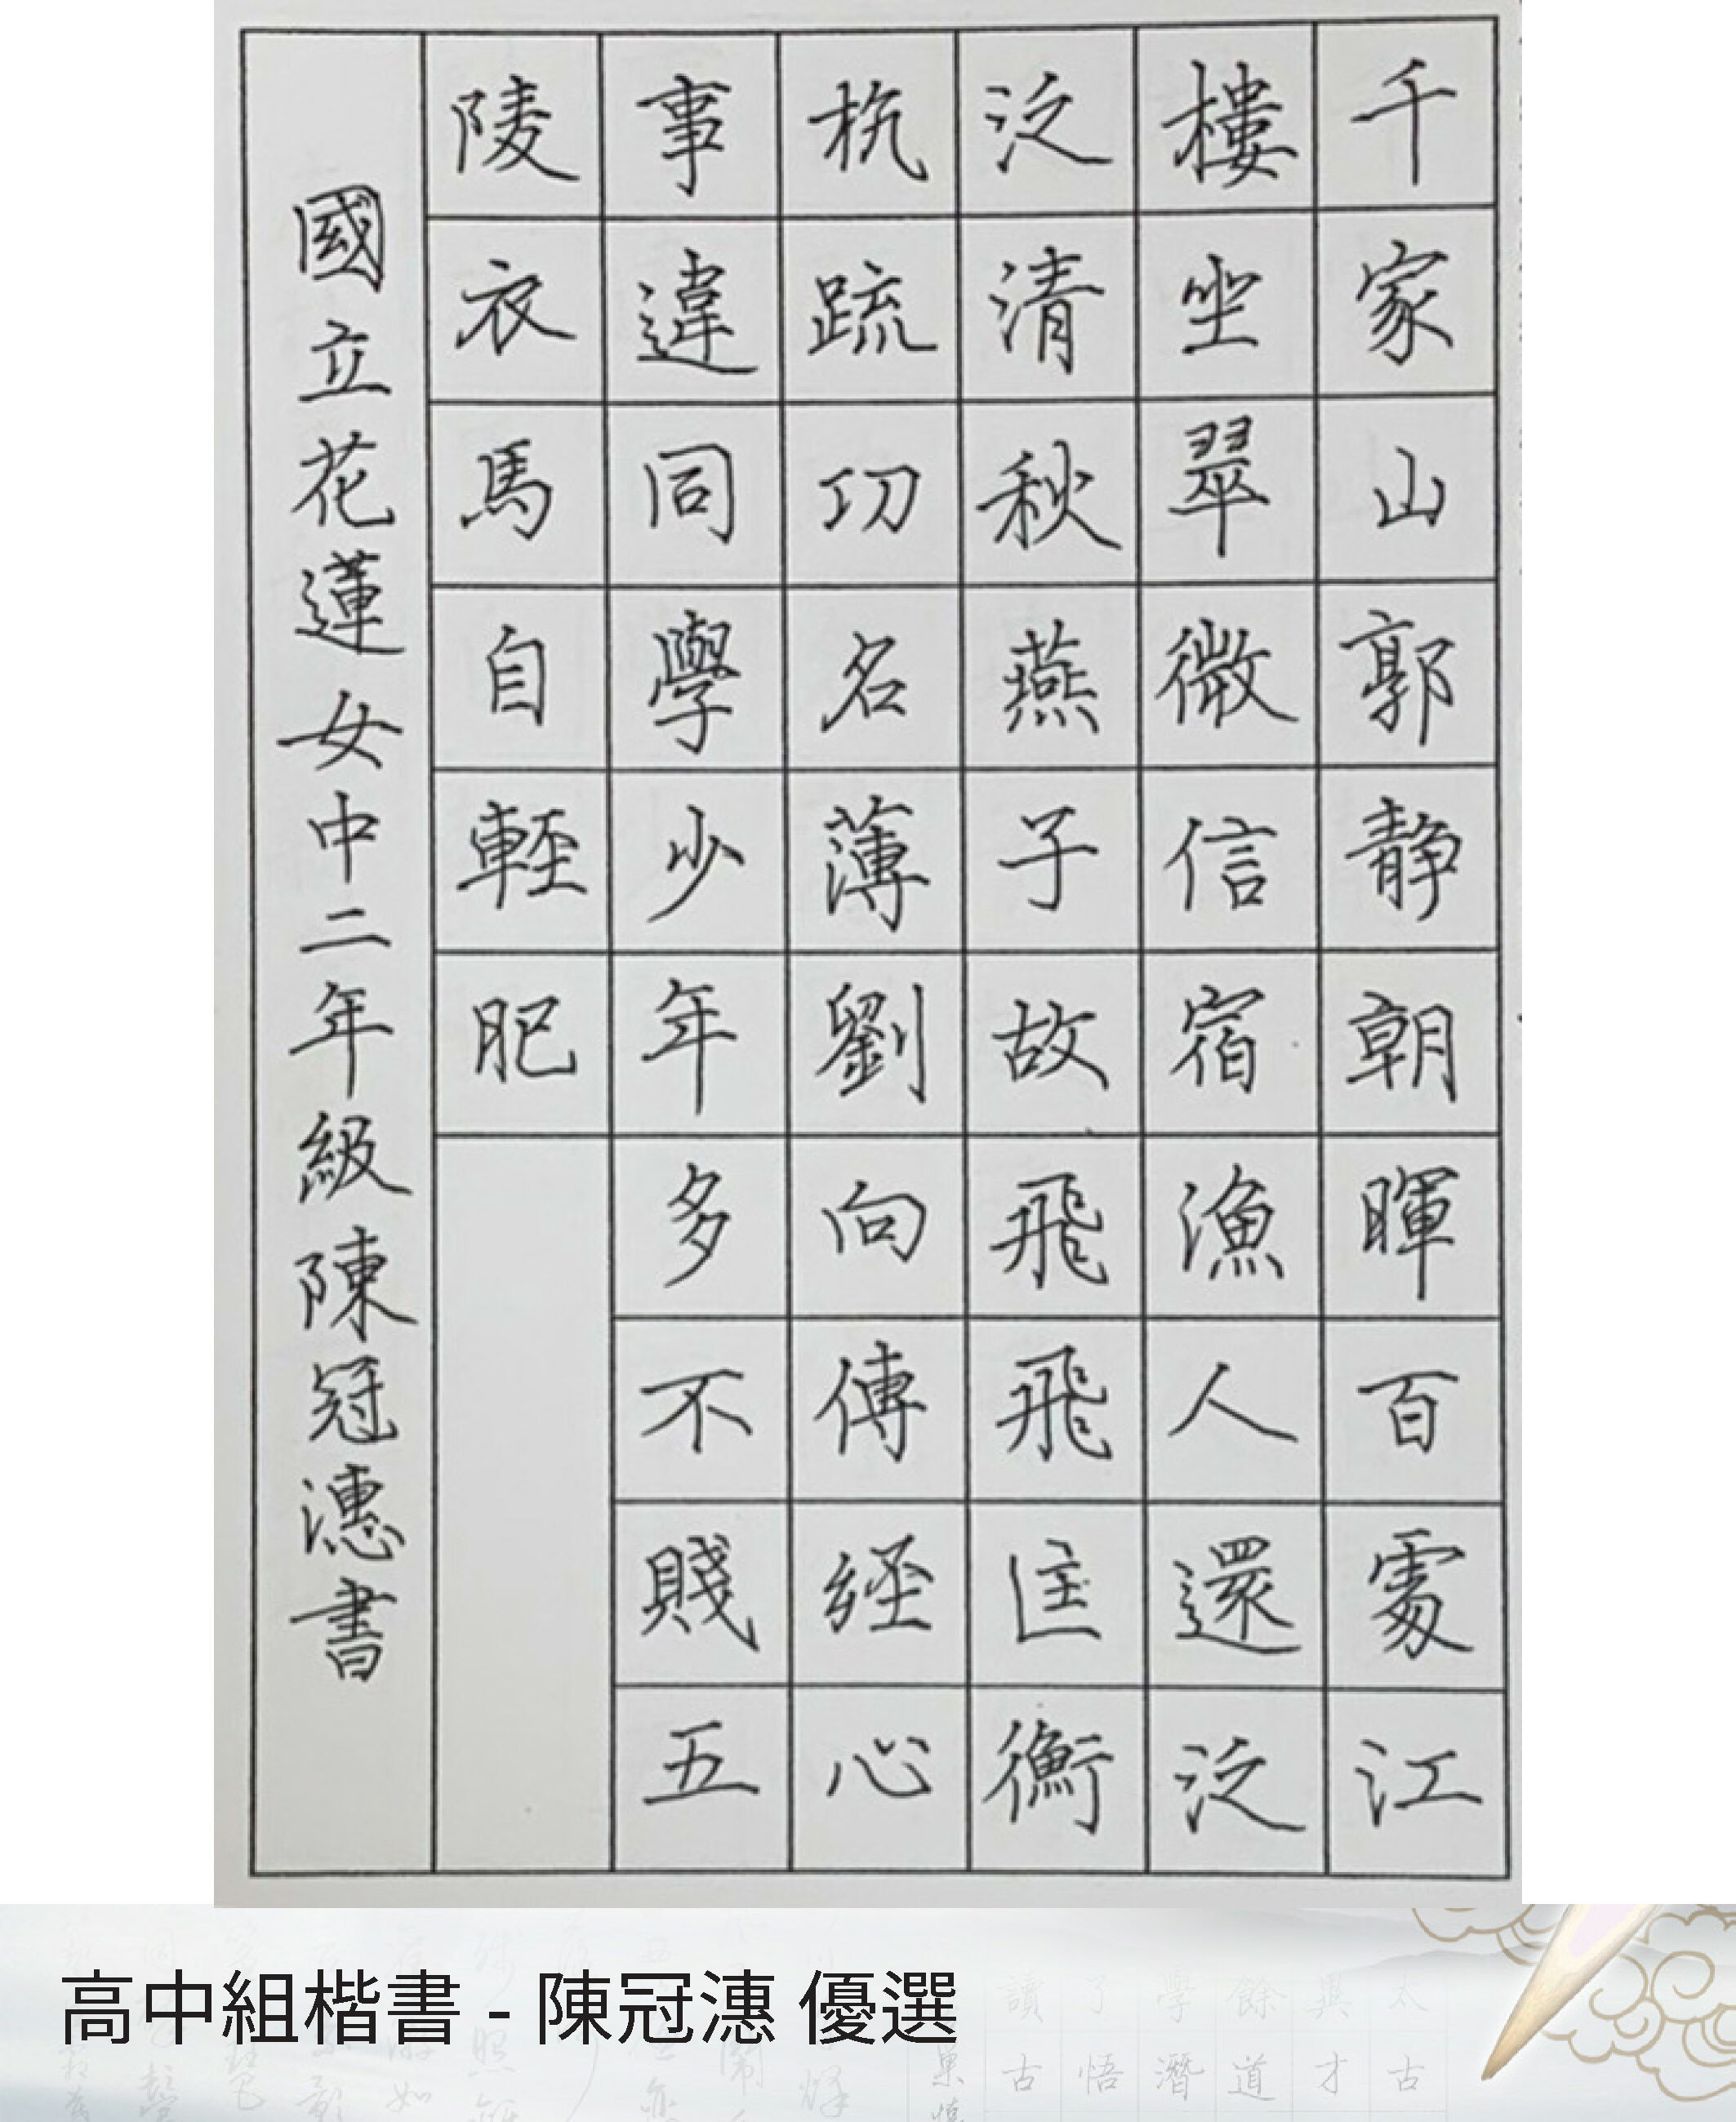 千家山郭靜朝暉百處江
樓坐翠微信宿漁人還泛
泛清秋燕子故飛飛匡衡
抗疏功名薄劉向傳經心
事違同學少年多不賤五
陵衣馬自輕肥
國立花蓮女中二年級陳冠憓書
高中組楷書 - 陳冠漶 優選